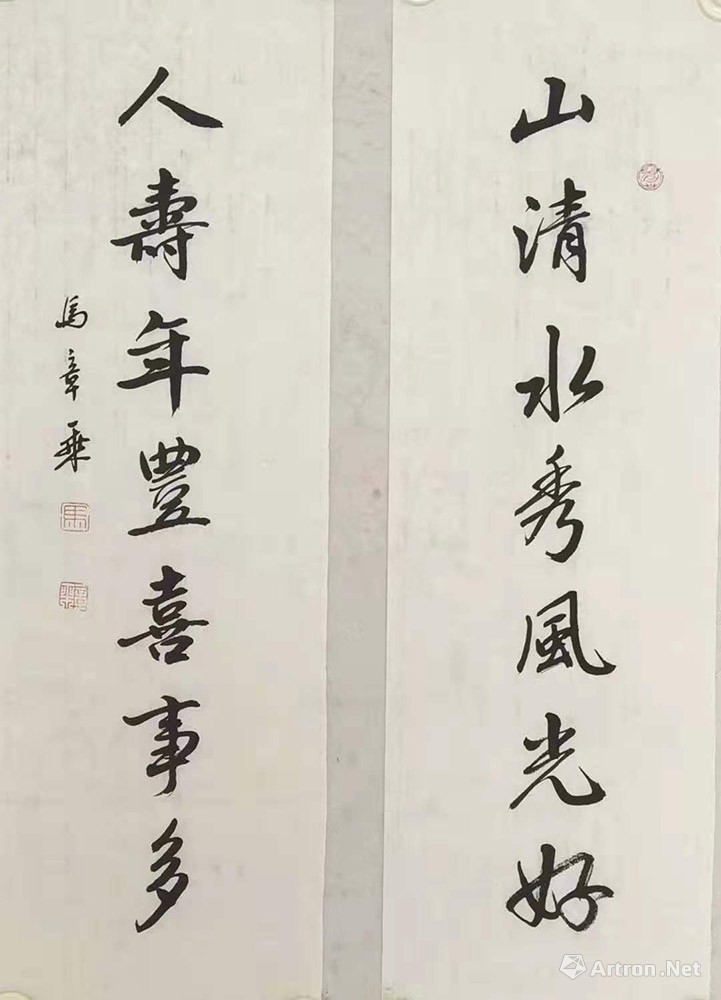 山清水秀風光好
人壽年豐喜事多
馬章乘
Artron.Net